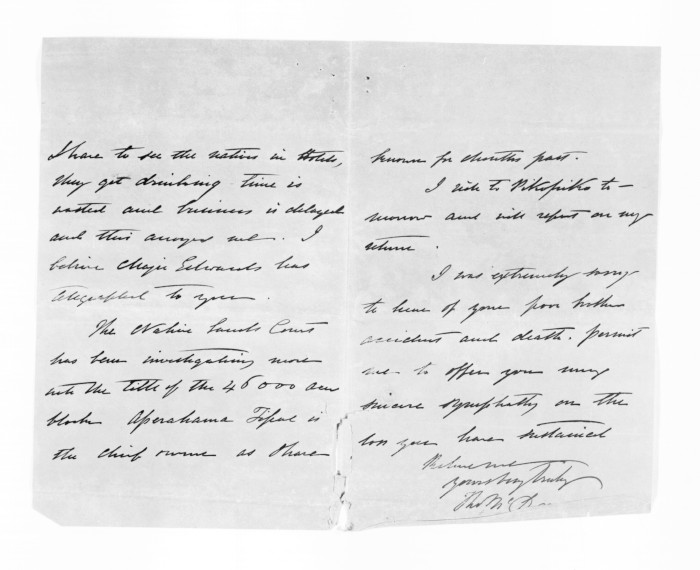 I have to see the natives in Hotels,
they get drinking time is
wasted and business is delayed
and this annoyed me. I
believe Major Edwards has
telegraphed to you.
The Native Lands Court
has been investigating more
into the title of the 46000 acre
block Aperahama Tipae is
the chief owner as I have
known for months past.
I ride to Pikopiko to-
morrow and will report on my
return.
I was extremely sorry
to hear of your poor brothers
accident and death. Permit
me to offer you my
sincere sympathy on the
loss you have sustained
Believe me
yours very truly
Thos McD